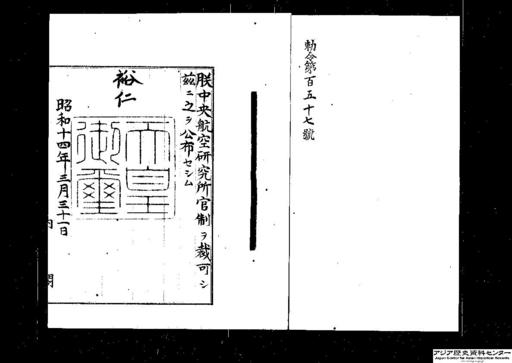 勅令第百五十七號
朕中央航空研究所官制ヲ裁可シ
茲ニ之ヲ公布セシム
裕仁
天皇
御璽
昭和十四年三月三十一日
内閣
アジア歴史資料センター
Japan Center for Asian Historical Records